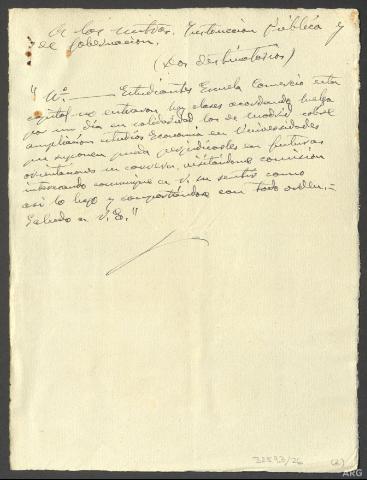 A los Mtros. Instrucción Pública y
de Gobernación.
(Dos destinatarios)
"Nº.—— Estudiantes Escuela Comercio esta
capital no entraron hoy clases acordando huelga
por un día en solidaridad los de Madrid sobre
ampliación estudios Economía en Universidades
que suponen pueda perjudicarles en futuras
orientaciones su carrera, visitándome comisión
interesando comunique a V. su sentir como
así lo hago y comportándose con todo orden.—
Saludo a V.E."
32593/26
(2)
ARG